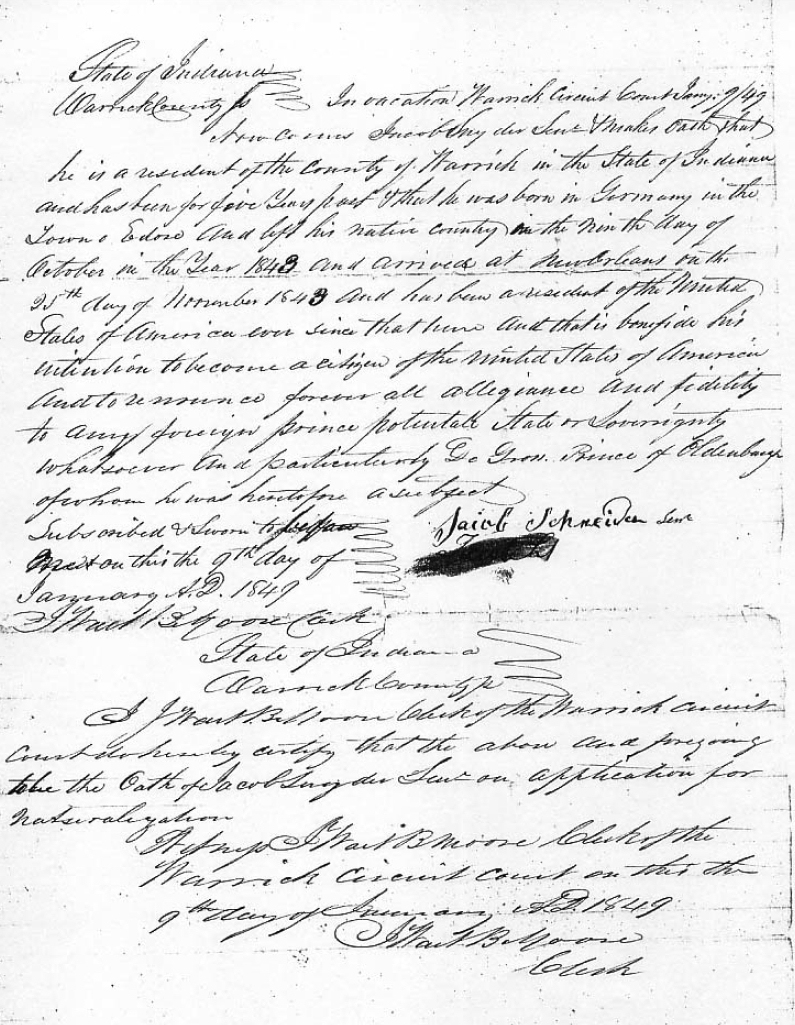 State of Indiana
Warrick County ss In vacation Warrick Circuit Court Jany. 9/49
Now comes Jacob Snyder Senr & makes Oath that
he is a resident of the County of Warrick in the State of Indiana
and has been for five Years past & that he was born in Germany in the
Town o And left his native country on the Ninth day of
October in the Year 1843 And arrived at New Orleans on the
25th day of November 1843 And has been a resident of the United
States of America ever since that time And that is bonifide his
intention to become a citizen of the United States of America
And to rennounce forever all allegiance And fidelity
to any foreign prince potentate State or Soverignty
whatsoever And particularly De Gros. Prince of Oldenburg
of whom he was heretofore a subject
Subscribed & Sworn to before Jacob Schneider Senr
me on this the 9th day of
January A.D. 1849
J Wait B Moore Clerk
State of Indiana
Warrick County ss
I J Wait B Moore Clerk of the Warrick Circuit
Court do hereby certify that the above and foregoing
to be the Oath of Jacob Snyder Senr on application for
Naturalization
Witness J Wait B Moore Clerk of the
Warrick Circuit Court on this the
9th day of January A.D. 1849
J Wait B Moore
Clerk